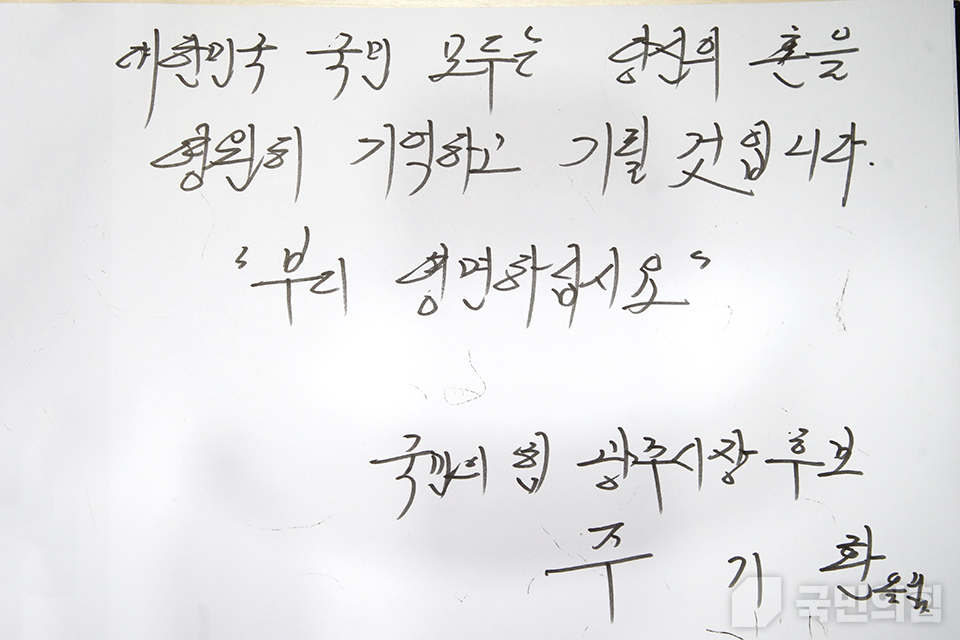 대한민국 국민 모두는 당신의 혼을
영원히 기억하고 기릴 것입니다.
"부디 영면하십시요"
국민의힘 광주시장 후보
주 기 환 올림
국민의힘